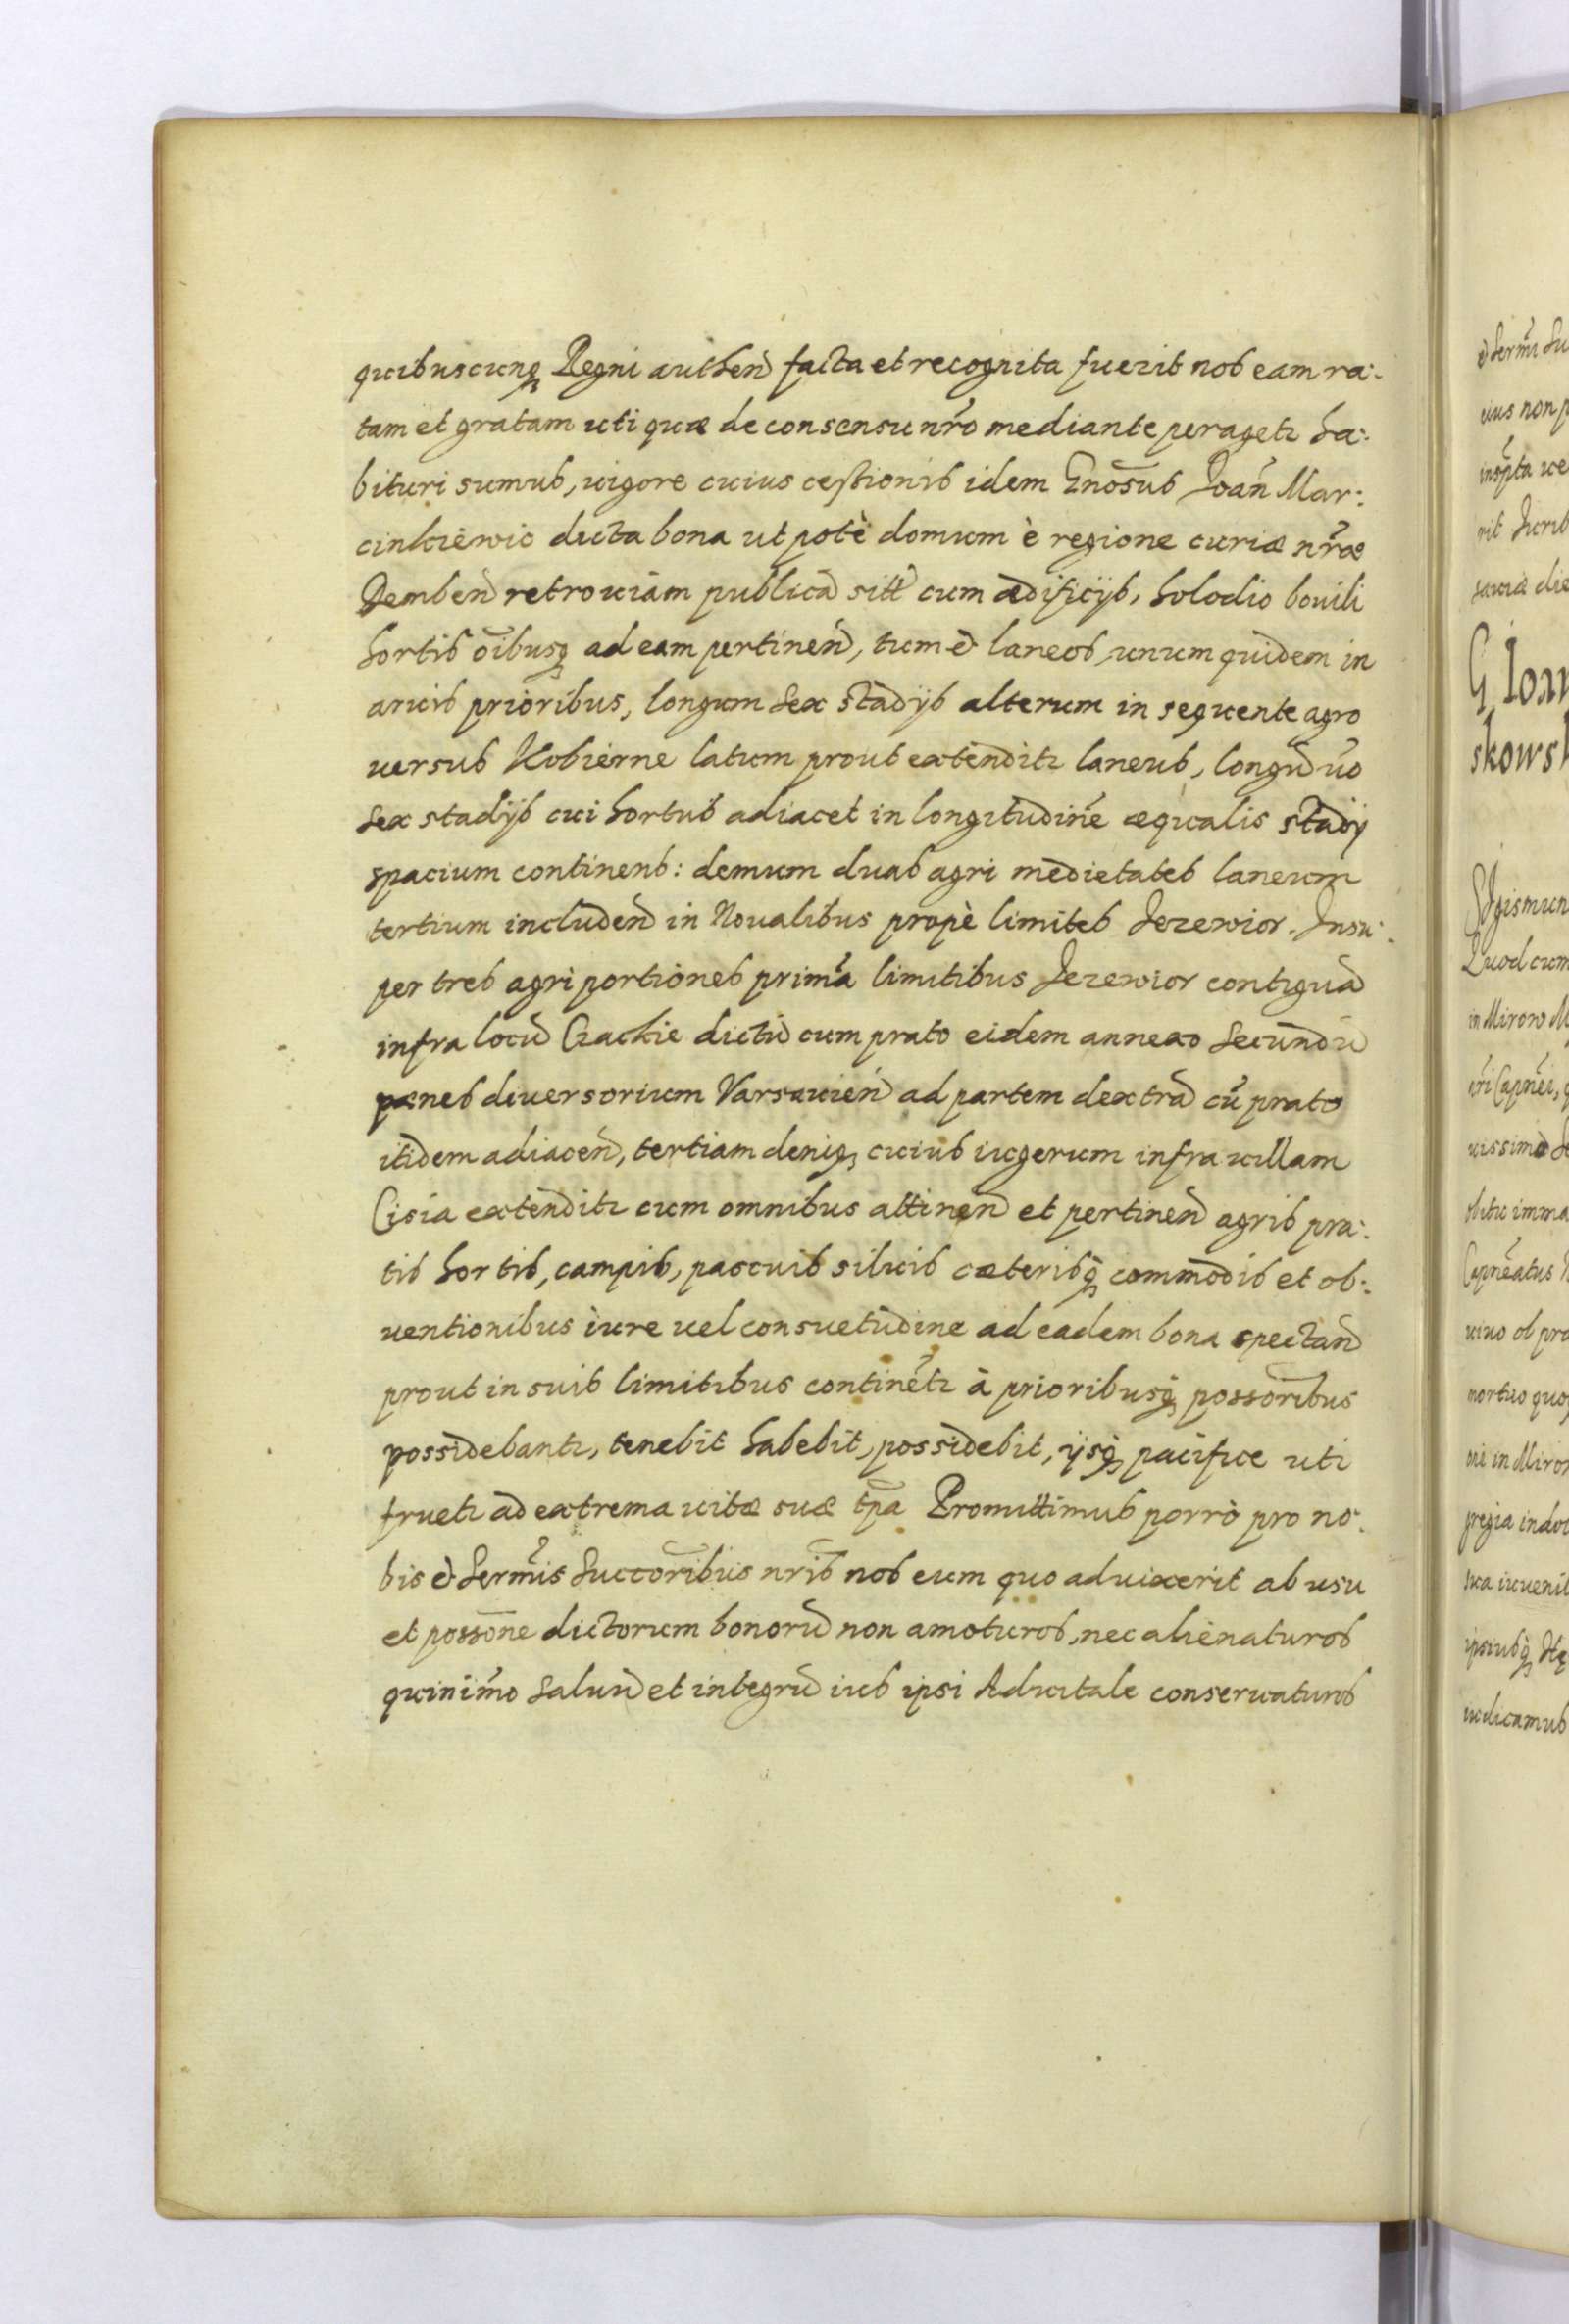 quibuscunq Regni authen facta et recognita fuerit nos eam ra:
tam et gratam uti quæ de consensu nro mediante peragetr ha:
bituri sumus, uigore cuius cessionis idem Gnosus Joan Mar:
cinkiewic dicta bona ut potè domum è regione curiæ nræ
Demben retro uiam publica sitt cum ædificijs, bolodio bouili
hortis oibusq ad eam pertinen, tum et laneos, unum quidem in
aruis prioribus, longum sex stadijs alterum in sequente agro
uersus Kobierne latum prout extenditr laneus, longu uo
sex stadijs cui hortus adiacet in longitudine æqualis stadij
spacium continens: demum duas agri medietates laneum
tertium includen in Noualibus propè limites Jezewior. Insu:
per tres agri portiones prima limitibus Jezewior contigua
infra locu Czackie dictu cum prato eidem annexo secundu
pænes diuersorium Varsauien ad partem dextra cu prato
itidem adiacen, tertiam deniq, cuius iugerum infra uillam
Cisia extenditr cum omnibus attinen et pertinen agris pra:
tis hortis, campis, pascuis siluis cæterisq commodis et ob:
uentionibus iure uel consuetudine ad eadem bona spectan
prout in suis limitibus continetr à prioribusq possoribus
possidebantr, tenebit habebit, possidebit, ijsq pacifice uti
fruetr ad extrema uitæ suæ tpa Promittimus porrò pro no:
bis et Sermis Succoribus nris nos eum quo aduixerit ab usu
et possone dictorum bonoru non amoturos, nec alienaturos
quinimo saluu et integru ius ipsi Aduitale conseruaturos
et Sermi Su
eius non p
inspta ue
rit Juris
sauiæ die
G Ioan
skows
SIgismun
Quod cum
in Mirow M
eri Capnei, q
uissimo
obitu imma
Capneatus
uiuo ob pra
mortuo quo
oni in Miro
gregia indol
sua iuuenil
ipsiusq
indicamus